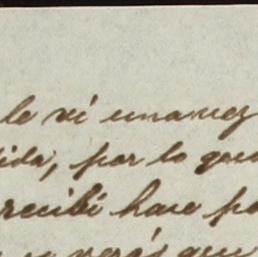 le vi una vez
ida, por lo que
recibi hace po
y verás que